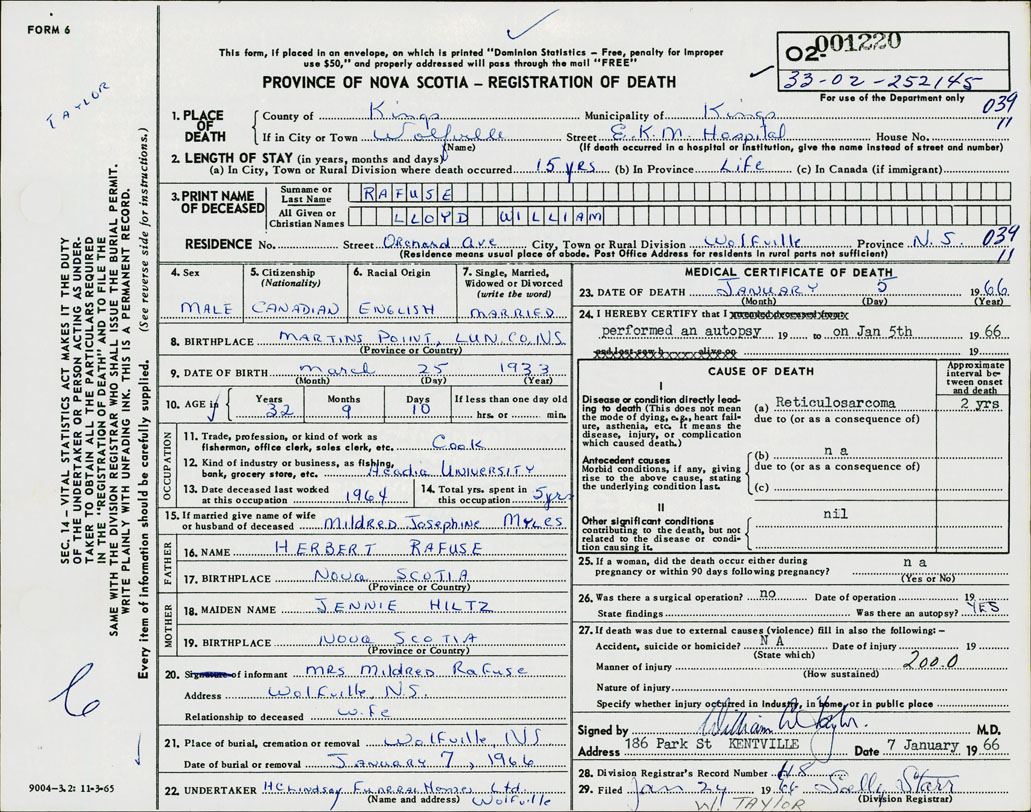 FORM 6
TAYLOR
This form, if placed in an envelope, on which is printed "Dominion Statistics – Free, penalty for improper
use $50," and properly addressed will pass through the mail "FREE"
PROVINCE OF NOVA SCOTIA – REGISTRATION OF DEATH
02-001220
33-02-252145
For use of the Department only
039
11
SEC. 14 – VITAL STATISTICS ACT MAKES IT THE DUTY
OF THE UNDERTAKER OR PERSON ACTING AS UNDER-
TAKER TO OBTAIN ALL THE PARTICULARS REQUIRED
IN THE "REGISTRATION OF DEATH" AND TO FILE THE
SAME WITH THE DIVISION REGISTRAR WHO SHALL ISSUE THE BURIAL PERMIT.
WRITE PLAINLY WITH UNFADING INK. THIS IS A PERMANENT RECORD.
Every item of information should be carefully supplied. (See reverse side for instructions.)
1. PLACE OF DEATH
County of Kings Municipality of Kings
If in City or Town Wolfville Street E.K.M. Hospital House No.
(Name) (If death occurred in a hospital or institution, give the name instead of street and number)
2. LENGTH OF STAY (in years, months and days)
(a) In City, Town or Rural Division where death occurred 15 yrs (b) In Province Life (c) In Canada (if immigrant)
3. PRINT NAME OF DECEASED
Surname or Last Name RAFUSE
All Given or Christian Names LLOYD WILLIAM
RESIDENCE No. Street Orchard Ave City, Town or Rural Division Wolfville Province N.S. 039
(Residence means usual place of abode. Post Office Address for residents in rural parts not sufficient) 11
4. Sex MALE
5. Citizenship (Nationality) CANADIAN
6. Racial Origin ENGLISH
7. Single, Married, Widowed or Divorced (write the word) MARRIED
8. BIRTHPLACE MARTINS POINT, LUN. CO. NS
(Province or Country)
9. DATE OF BIRTH March 25 1933
(Month) (Day) (Year)
10. AGE if Years 32 Months 9 Days 10 If less than one day old hrs. or min.
OCCUPATION
11. Trade, profession, or kind of work as
fisherman, office clerk, sales clerk, etc. Cook
12. Kind of industry or business, as fishing,
bank, grocery store, etc. Acadia UNIVERSITY
13. Date deceased last worked
at this occupation 1964
14. Total yrs. spent in
this occupation 5 yrs
15. If married give name of wife
or husband of deceased Mildred Josephine Myles
FATHER
16. NAME HERBERT RAFUSE
17. BIRTHPLACE NOVA SCOTIA
(Province or Country)
MOTHER
18. MAIDEN NAME JENNIE HILTZ
19. BIRTHPLACE NOVA SCOTIA
(Province or Country)
20. Signature of informant MRS Mildred Rafuse
Address Wolfville NS.
Relationship to deceased Wife
21. Place of burial, cremation or removal Wolfville NS
Date of burial or removal JANUARY 7, 1966
22. UNDERTAKER HC Lindsay Funeral Homes Ltd.
(Name and address) Wolfville
9004-3.2: 11-3-65
MEDICAL CERTIFICATE OF DEATH
23. DATE OF DEATH JANUARY 5 1966
(Month) (Day) (Year)
24. I HEREBY CERTIFY that I
performed an autopsy 19 to on Jan 5th 1966
19
CAUSE OF DEATH
Approximate interval between onset and death
I
Disease or condition directly lead-
ing to death (This does not mean
the mode of dying, e.g., heart fail-
ure, asthenia, etc. It means the
disease, injury, or complication
which caused death.)
(a) Reticulosarcoma 2 yrs
due to (or as a consequence of)
Antecedent causes
Morbid conditions, if any, giving
rise to the above cause, stating
the underlying condition last.
(b) n a
due to (or as a consequence of)
(c)
II
Other significant conditions
contributing to the death, but not
related to the disease or condi-
tion causing it.
nil
25. If a woman, did the death occur either during
pregnancy or within 90 days following pregnancy? n a
(Yes or No)
26. Was there a surgical operation? no Date of operation 19
State findings Was there an autopsy? YES
27. If death was due to external causes (violence) fill in also the following: –
Accident, suicide or homicide? N A Date of injury 19
(State which)
Manner of injury 200.0
(How sustained)
Nature of injury
Specify whether injury occurred in industry, in home, or in public place
Signed by William Taylor M.D.
Address 186 Park St KENTVILLE Date 7 January 1966
28. Division Registrar's Record Number 48
29. Filed Jan 24 1966 Starr
(Division Registrar)
W. TAYLOR